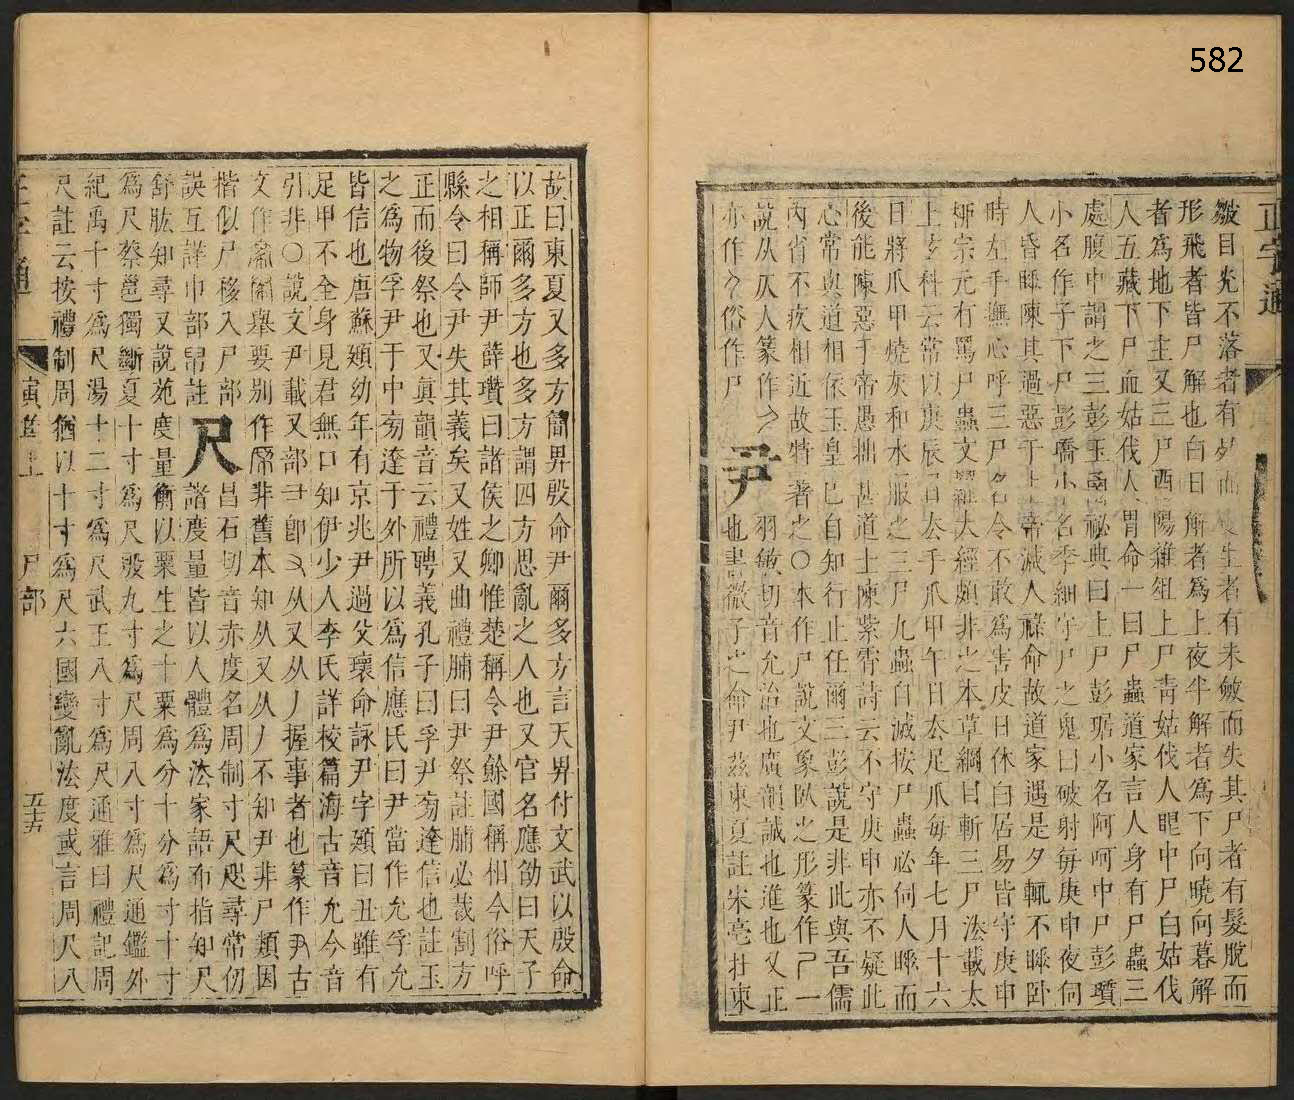 582
正字通
皺目光不落者有 生者有未斂而失其尸者有髮脫而
形飛者皆尸解也白日解者爲上夜半解者爲下向曉向暮解
者爲地下主又三尸酉陽雜俎上尸靑姑伐人眼中尸白姑伐
人五藏下尸血姑伐人胃命一曰尸蟲道家言人身有尸蟲三
處腹中謂之三彭玉 祕典曰上尸彭琚小名阿呵中尸彭瓆
小名作子下尸彭矯小名季細守尸之鬼曰破射每庚申夜伺
人昏睡陳其過惡于上帝減人祿命故道家遇是夕輒不睡臥
時左手撫心呼三尸名令不敢爲害皮日休白居易皆守庚申
柳宗元有罵尸蟲文 大經頗非之本草綱目斬三尸法載太
上 科云常以庚辰日去手爪甲午日去足爪每年七月十六
日將爪甲燒灰和水服之三尸九蟲自滅按尸蟲必伺人睡而
後能陳惡于帝愚拙甚道士陳紫霄詩云不守庚申亦不疑此
心常與道相依玉皇已自知行止任爾三彭說是非此與吾儒
內省不疚相近故特著之○本作尸說文象臥之形篆作𠃜一
說从仄人篆作 亦作 俗作尸
尹
羽敏切音允治也廣韻誠也進也又正也書微子之命尹茲東夏註宋亳在東
故曰東夏又多方簡畀殷命尹爾多方言天畀付文武以殷命
以正爾多方也多方謂四方思亂之人也又官名應劭曰天子
之相稱師尹薛瓚曰諸侯之卿惟楚稱令尹餘國稱相今俗呼
縣令曰令尹失其義矣又姓又曲禮脯曰尹祭註脯必裁割方
正而後祭也又眞韻音云禮聘義孔子曰孚尹旁達信也註玉
之爲物孚尹于中旁達于外所以爲信應氏曰尹當作允孚允
皆信也唐蘇頲幼年有京兆尹過父瓌命詠尹字頲曰丑雖有
足甲不全身見君無口知伊少人李氏詳校篇海古音允今音
引非○說文尹載又部 卽 从又从丿握事者也篆作 古
文作 舉要別作 非舊本知从又从丿不知尹非尸類因
楷似尸移入尸部
誤互詳巾部帬註
尺
昌石切音赤度名周制寸尺咫尋常仞
諸度量皆以人體爲法家語布指知尺
舒肱知尋又說苑度量衡以粟生之十粟爲分十分爲寸十寸
爲尺蔡邕獨斷夏十寸爲尺殷九寸爲尺周八寸爲尺通鑑外
紀禹十寸爲尺湯十二寸爲尺武王八寸爲尺通雅曰禮記周
尺註云按禮制周猶以十寸爲尺六國變亂法度或言周尺八
正字通
寅集上
尸部
五十五